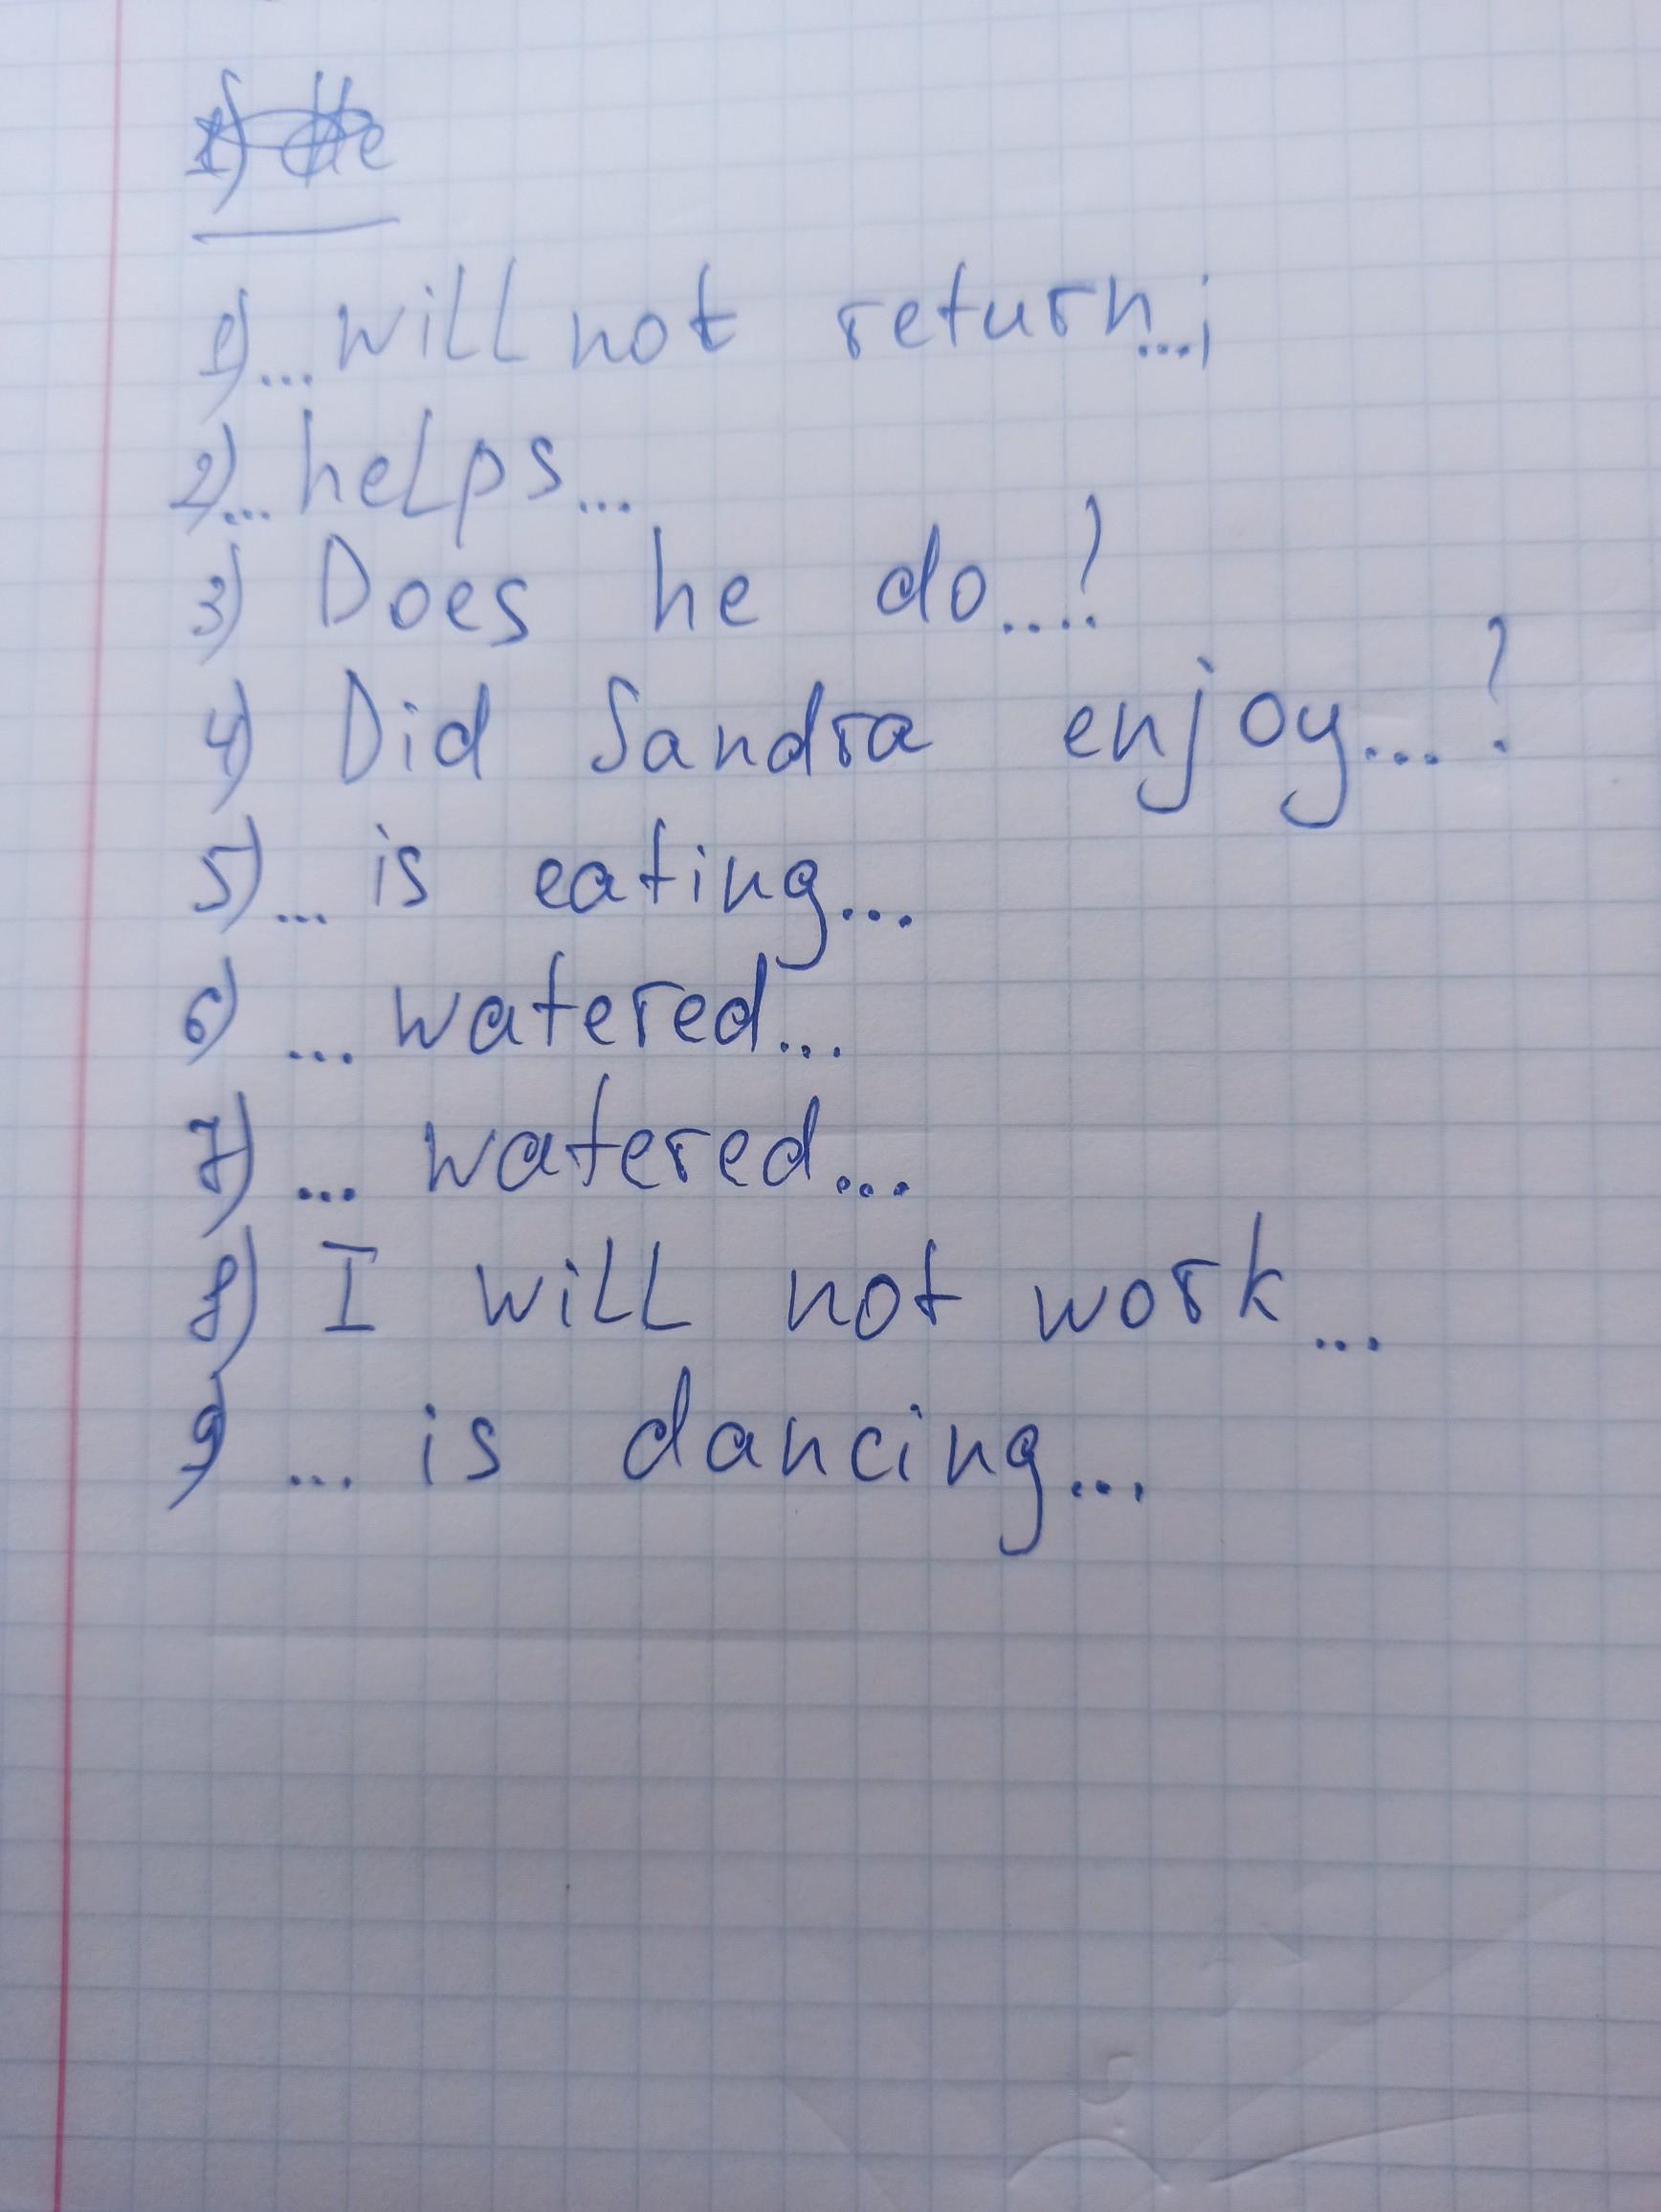 1) He
1)... will not return...;
2)... helps...
3) Does he do...?
4) Did Sandra enjoy...?
5)... is eating...
6) ... watered...
7) ... watered...
8) I will not work...
9) ... is dancing...